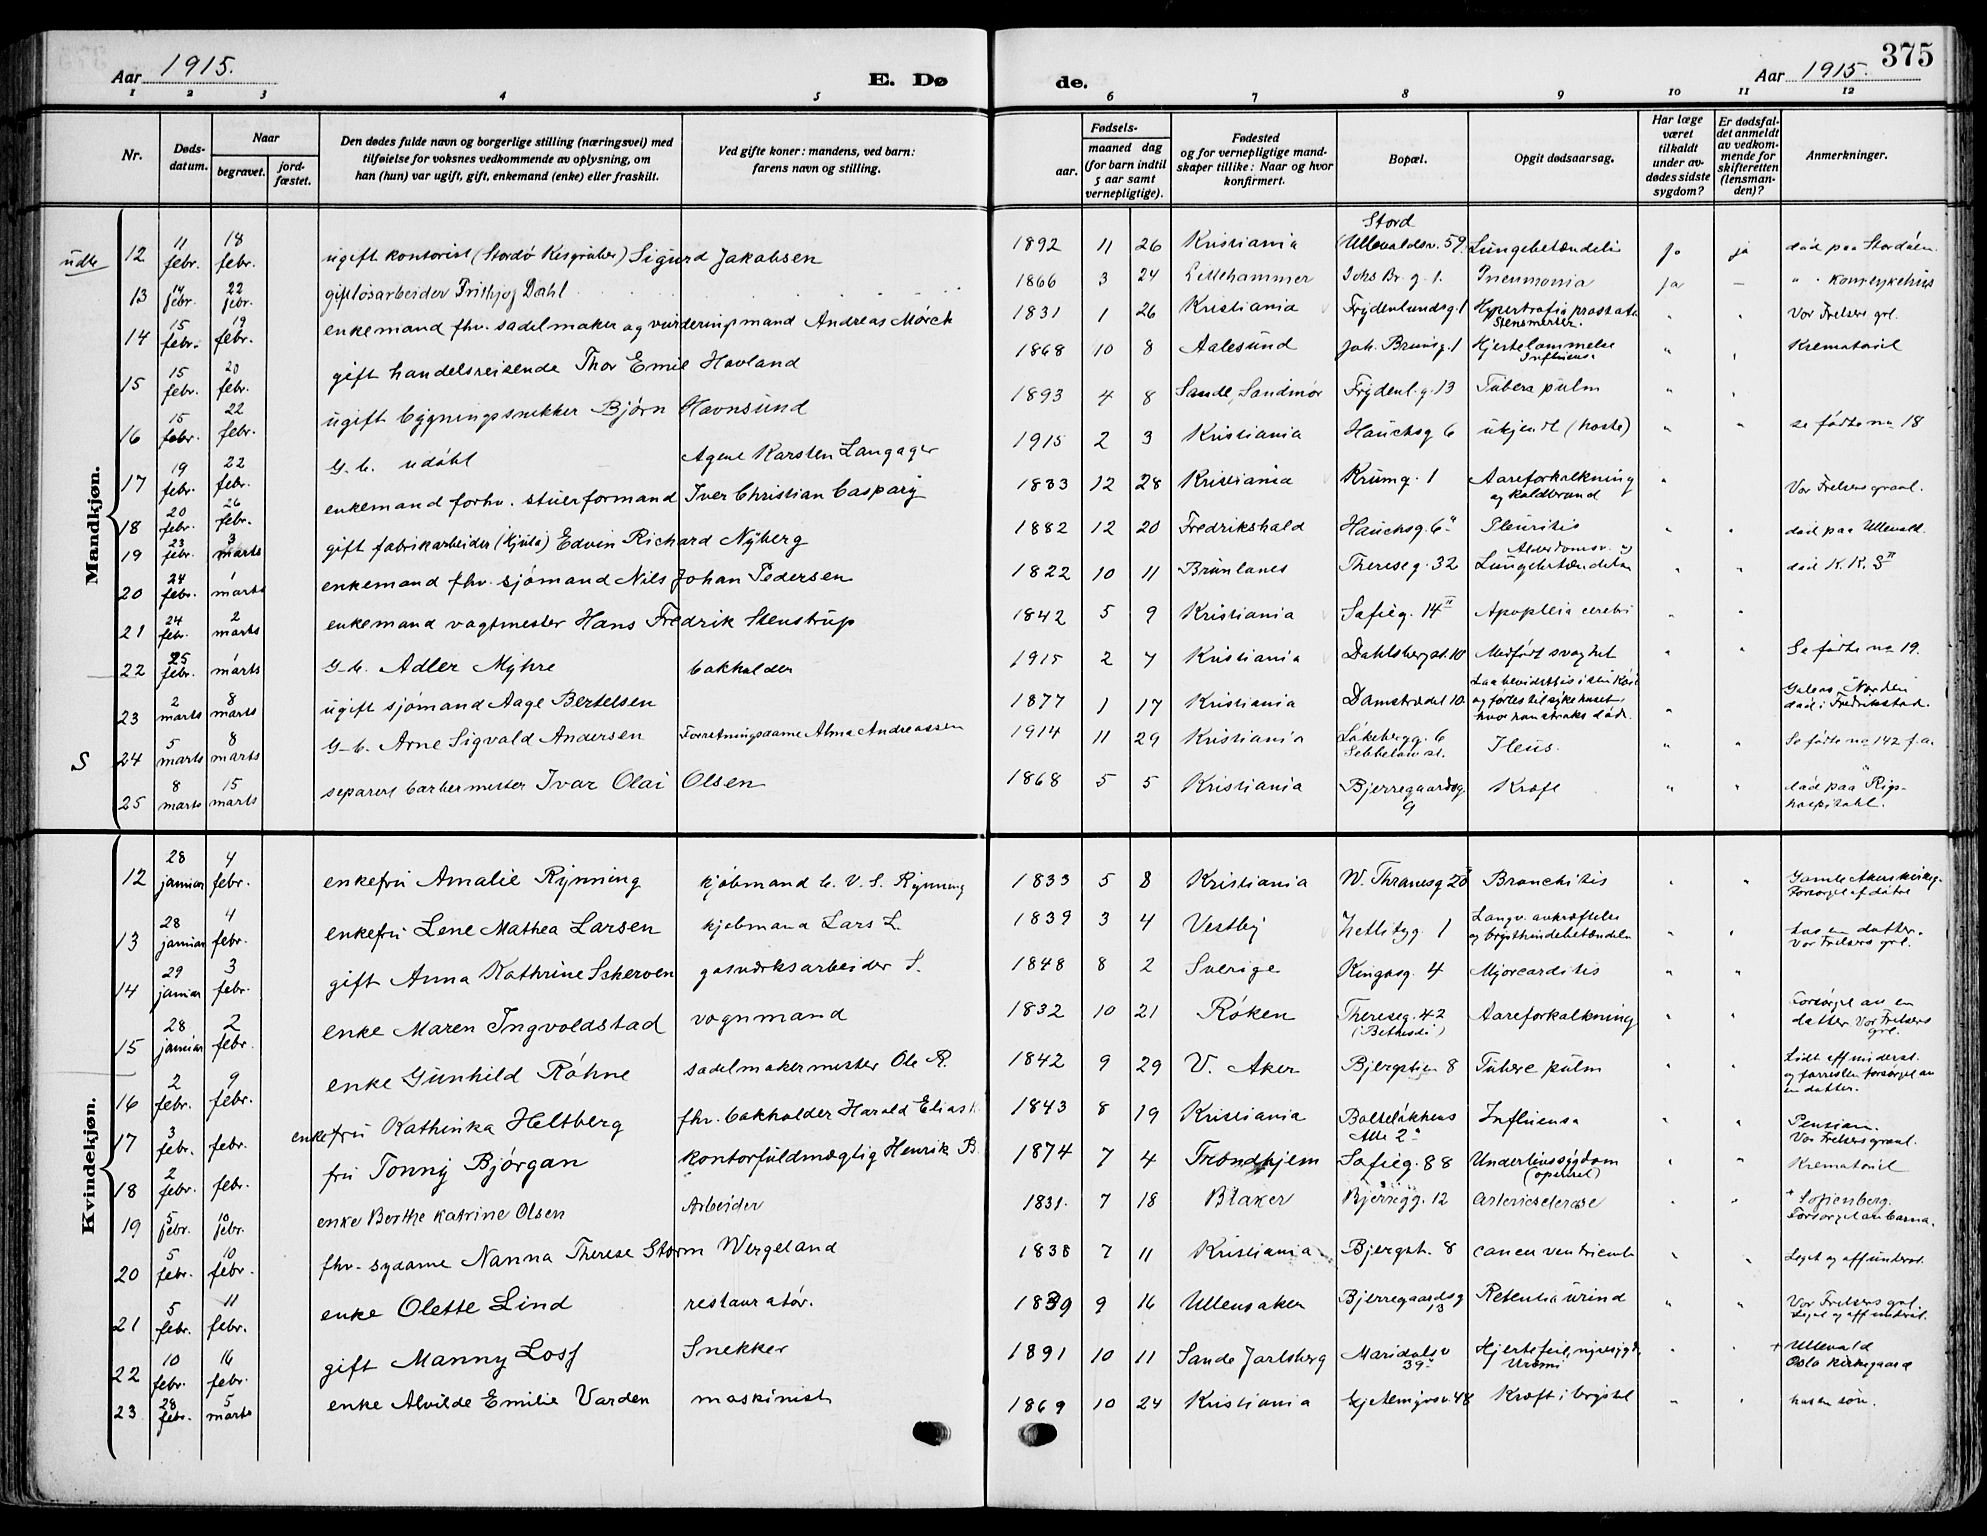 375
Aar 1915. E. Dø de. Aar 1915.
1 2 3 4 5 6 7 8 9 10 11 12
Nr. | Døds-datum. | Naar begravet. | jord-fæstet. | Den dødes fulde navn og borgerlige stilling (næringsvei) med tilføielse for voksnes vedkommende av oplysning, om han (hun) var ugift, gift, enkemand (enke) eller fraskilt. | Ved gifte koner: mandens, ved barn: farens navn og stilling. | Fødsels- aar. | maaned dag (for barn indtil 5 aar samt vernepligtige). | Fødested og for vernepligtige mand-skaper tillike: Naar og hvor konfirmert. | Bopæl. | Opgit dødsaarsag. | Har læge været tilkaldt under av-dødes sidste sygdom? | Er dødsfal-det anmeldt av vedkom-mende for skifteretten (lensman-den)? | Anmerkninger.
Mandkjøn.
12 | 11 febr. | 18 febr. | ugift kontorist (Stordø Kisgruber) Sigurd Jakobsen | 1892 | 11 | 26 | Kristiania | Stord (Ullevoldsv. 59 | Lungebetændelse | Ja | ja | død paa Stordøen
13 | 14 febr. | 22 febr. | gift løsarbeider Frithjof Dahl | 1866 | 3 | 24 | Lillehammer | Johs Br. g. 1. | Pneumonia | ja | —
14 | 15 febr. | 19 febr. | enkemand fhv. sadelmaker og vurderingsmand Andreas Mørch | 1831 | 1 | 26 | Kristiania | Frydenlundsg. 1 | Hypertrofia prostata | " | " | Vor Frelsers grl.
15 | 15 febr. | 20 febr. | gift handelsreisende Thor Emil Hovland | 1868 | 10 | 8 | Aalesund | Joh. Brunsg. 1 | Hjertelammelse Influensa | " | " | Krematoriet
16 | 15 febr. | 22 febr. | ugift bygningssnekker Bjørn Havnsund | 1893 | 4 | 8 | Sande, Søndmør | Frydenl. g. 13 | Tuberc pulm | " | "
17 | 19 febr. | 22 febr. | G. b. udøbt | Agent Karsten Langager | 1915 | 2 | 3 | Kristiania | Hauchsg 6 | ukjendt (hoste) | " | " | se fødte no 18
18 | 20 febr. | 26 febr. | enkemand forhv. stuerformand Iver Christian Caspary | 1833 | 12 | 28 | Kristiania | Krumg. 1 | Aareforkalkning og koldbrand | " | Vor Frelsers gravl.
19 | 23 febr. | 3 marts | gift fabrikarbeider (Hjula) Edvin Richard Nyberg | 1882 | 12 | 20 | Fredrikshald | Hauchsg. 6" | Pleuritis | " | " | død paa Ullevold.
20 | 24 febr. | 1 marts | enkemand fhv. sjømand Nils Johan Pedersen | 1822 | 10 | 11 | Brunlanes | Thereseg. 32 | Alderdomsv. og Lungebetændelse | " | " | død K. K. S"
21 | 24 febr. | 2 marts | enkemand vagtmester Hans Fredrik Stenstrup | 1842 | 5 | 9 | Kristiania | Sofieg. 14 II | Apoplexia cerebri | " | "
22 | 25 febr. | 1 marts | G-b. Adler Myhre | bokholder | 1915 | 2 | 7 | Kristiania | Dahlsbergst. 10 | Medfødt svaghet | " | " | Se fødte no 19.
23 | 2 marts | 8 marts | ugift sjømand Aage Bertelsen | 1877 | 1 | 17 | Kristiania | Damstrædet 10 | Laa bevidstløs i sin Køie og førtes til sykehuset, hvor han straks døde. | " | Galeas "Norden" død i Fredrikstad.
S 24 | 5 marts | 8 marts | G-b. Arne Sigvald Andersen | Forretningsdame Alma Andreassen | 1914 | 11 | 29 | Kristiania | Løkebergg. 6 | Ileus. | " | " | Se fødte no 142 f.a.
25 | 8 marts | 15 marts | separert barbermester Ivar Olai Olsen | 1868 | 5 | 5 | Kristiania | Bjerregaardsg. 9 | Kræft | " | " | død paa Rigs-hospitalet.
Kvindekjøn.
12 | 28 januar | 4 febr. | enkefru Amalie Rynning | kjøbmand C. V. S. Rynning | 1833 | 5 | 8 | Kristiania | W. Thranesg 20 | Bronchitis | " | " | Gamle Akers kirkeg. Forsørget af døtre
13 | 28 januar | 4 febr. | enkefru Lene Mathea Larsen | kjøbmand Lars L. | 1839 | 3 | 4 | Vestby | Zetlitzg 1 | Langv. avkræftelse og brysthindebetændelse | " | " | hos en datter. Vor Frelsers grl.
14 | 29 januar | 3 febr. | gift Anna Kathrine Scherven | gasværksarbeider S. | 1848 | 8 | 2 | Sverige | Kingosg. 4 | Myocarditis | " | "
15 | 28 januar | 2 febr. | enke Maren Ingvoldstad | vognmand | 1832 | 10 | 21 | Røken | Thereseg. 42 (Bethesda) | Aareforkalkning | Forsørget av en datter Vor Frelsers grl.
16 | 2 febr. | 9 febr. | enke Gunhild Røhne | sadelmakermester Ole R. | 1842 | 9 | 29 | V. Aker | Bjergstien 8 | Tuberc pulm | " | " | Lidt aff. underst. og forresten forsørget av en datter.
17 | 3 febr. | febr. | enkefru Kathinka Heltberg | fhv. bokholder Harald Elias H. | 1843 | 8 | 19 | Kristiania | Bolteløkkens Alle 2" | Influensa | " | " | Pension. Vor Frelsers gravl.
18 | 2 febr. | febr. | fru Tonny Bjørgan | kontorfuldmægtig Henrik B. | 1874 | 7 | 4 | Trondhjem | Sofieg. 88 | Underlivssygdom (operert) | " | " | Krematoriet
19 | 5 febr. | 10 febr. | enke Berthe Katrine Olsen | Arbeider | 1831. | 7 | 18 | Blaker | Bjerregg. 12 | arteriesclerose | " | " | Sofienberg. Forsørget av barna.
20 | 5 febr. | 10 febr. | fhv. sydame Nanna Therese Storm Wergeland | 1838 | 7 | 11 | Kristiania | Bjergst. 8 | cancer ventriculi | " | " | Leget og aff underst.
21 | 5 febr. | 11 febr. | enke Olette Lind | restauratør. | 1839 | 9 | 16 | Ullensaker | Bjerregaardsg 13 | Retentio urind | " | " | Vor Frelsers grl. Leget og aff underst.
22 | 10 febr. | 16 febr. | gift Manny Losf | Snekker | 1891 | 10 | 11 | Sande Jarlsberg | Maridalsv 39" | Hjertefeil, nyresygd. Uremi | " | " | + Ullevold Oslo Kirkegaard
23 | 28 febr. | 5 marts | enke Alvilde Emilie Varden | maskinist | 1869 | 10 | 24 | Kristiania | Gjetemyrsv. 48 | Kræft i brystet | " | " | hos en søn.